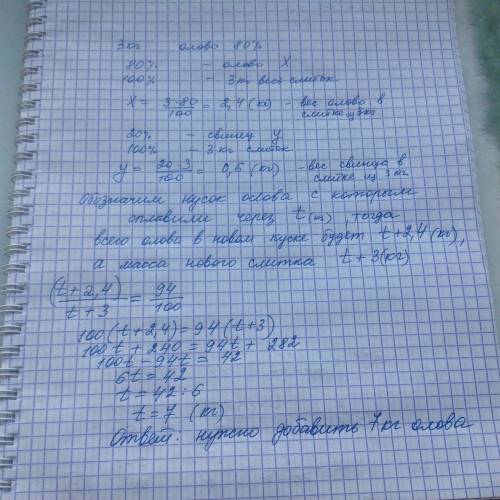 3кг олово 80%
80% - олово X
100% - 3 кг весь слиток
X = 3·80/100 = 2,4 (кг) - вес олова в слитке из 3 кг.
20% - свинец y
100% - 3 кг слиток
y = 20·3/100 = 0,6 (кг) - вес свинца в слитке из 3 кг.
Обозначим кусок олова с которым
сплавили через t (кг), тогда
всего олова в новом куске будет t+2,4 (кг),
а масса нового слитка t+3 (кг)
(t+2,4)/t+3 = 94/100
100(t+2,4)=94(t+3)
100t + 240 = 94t + 282
100t - 94t = 42
6t = 42
t = 42:6
t = 7 (кг)
Ответ: нужно добавить 7 кг олова